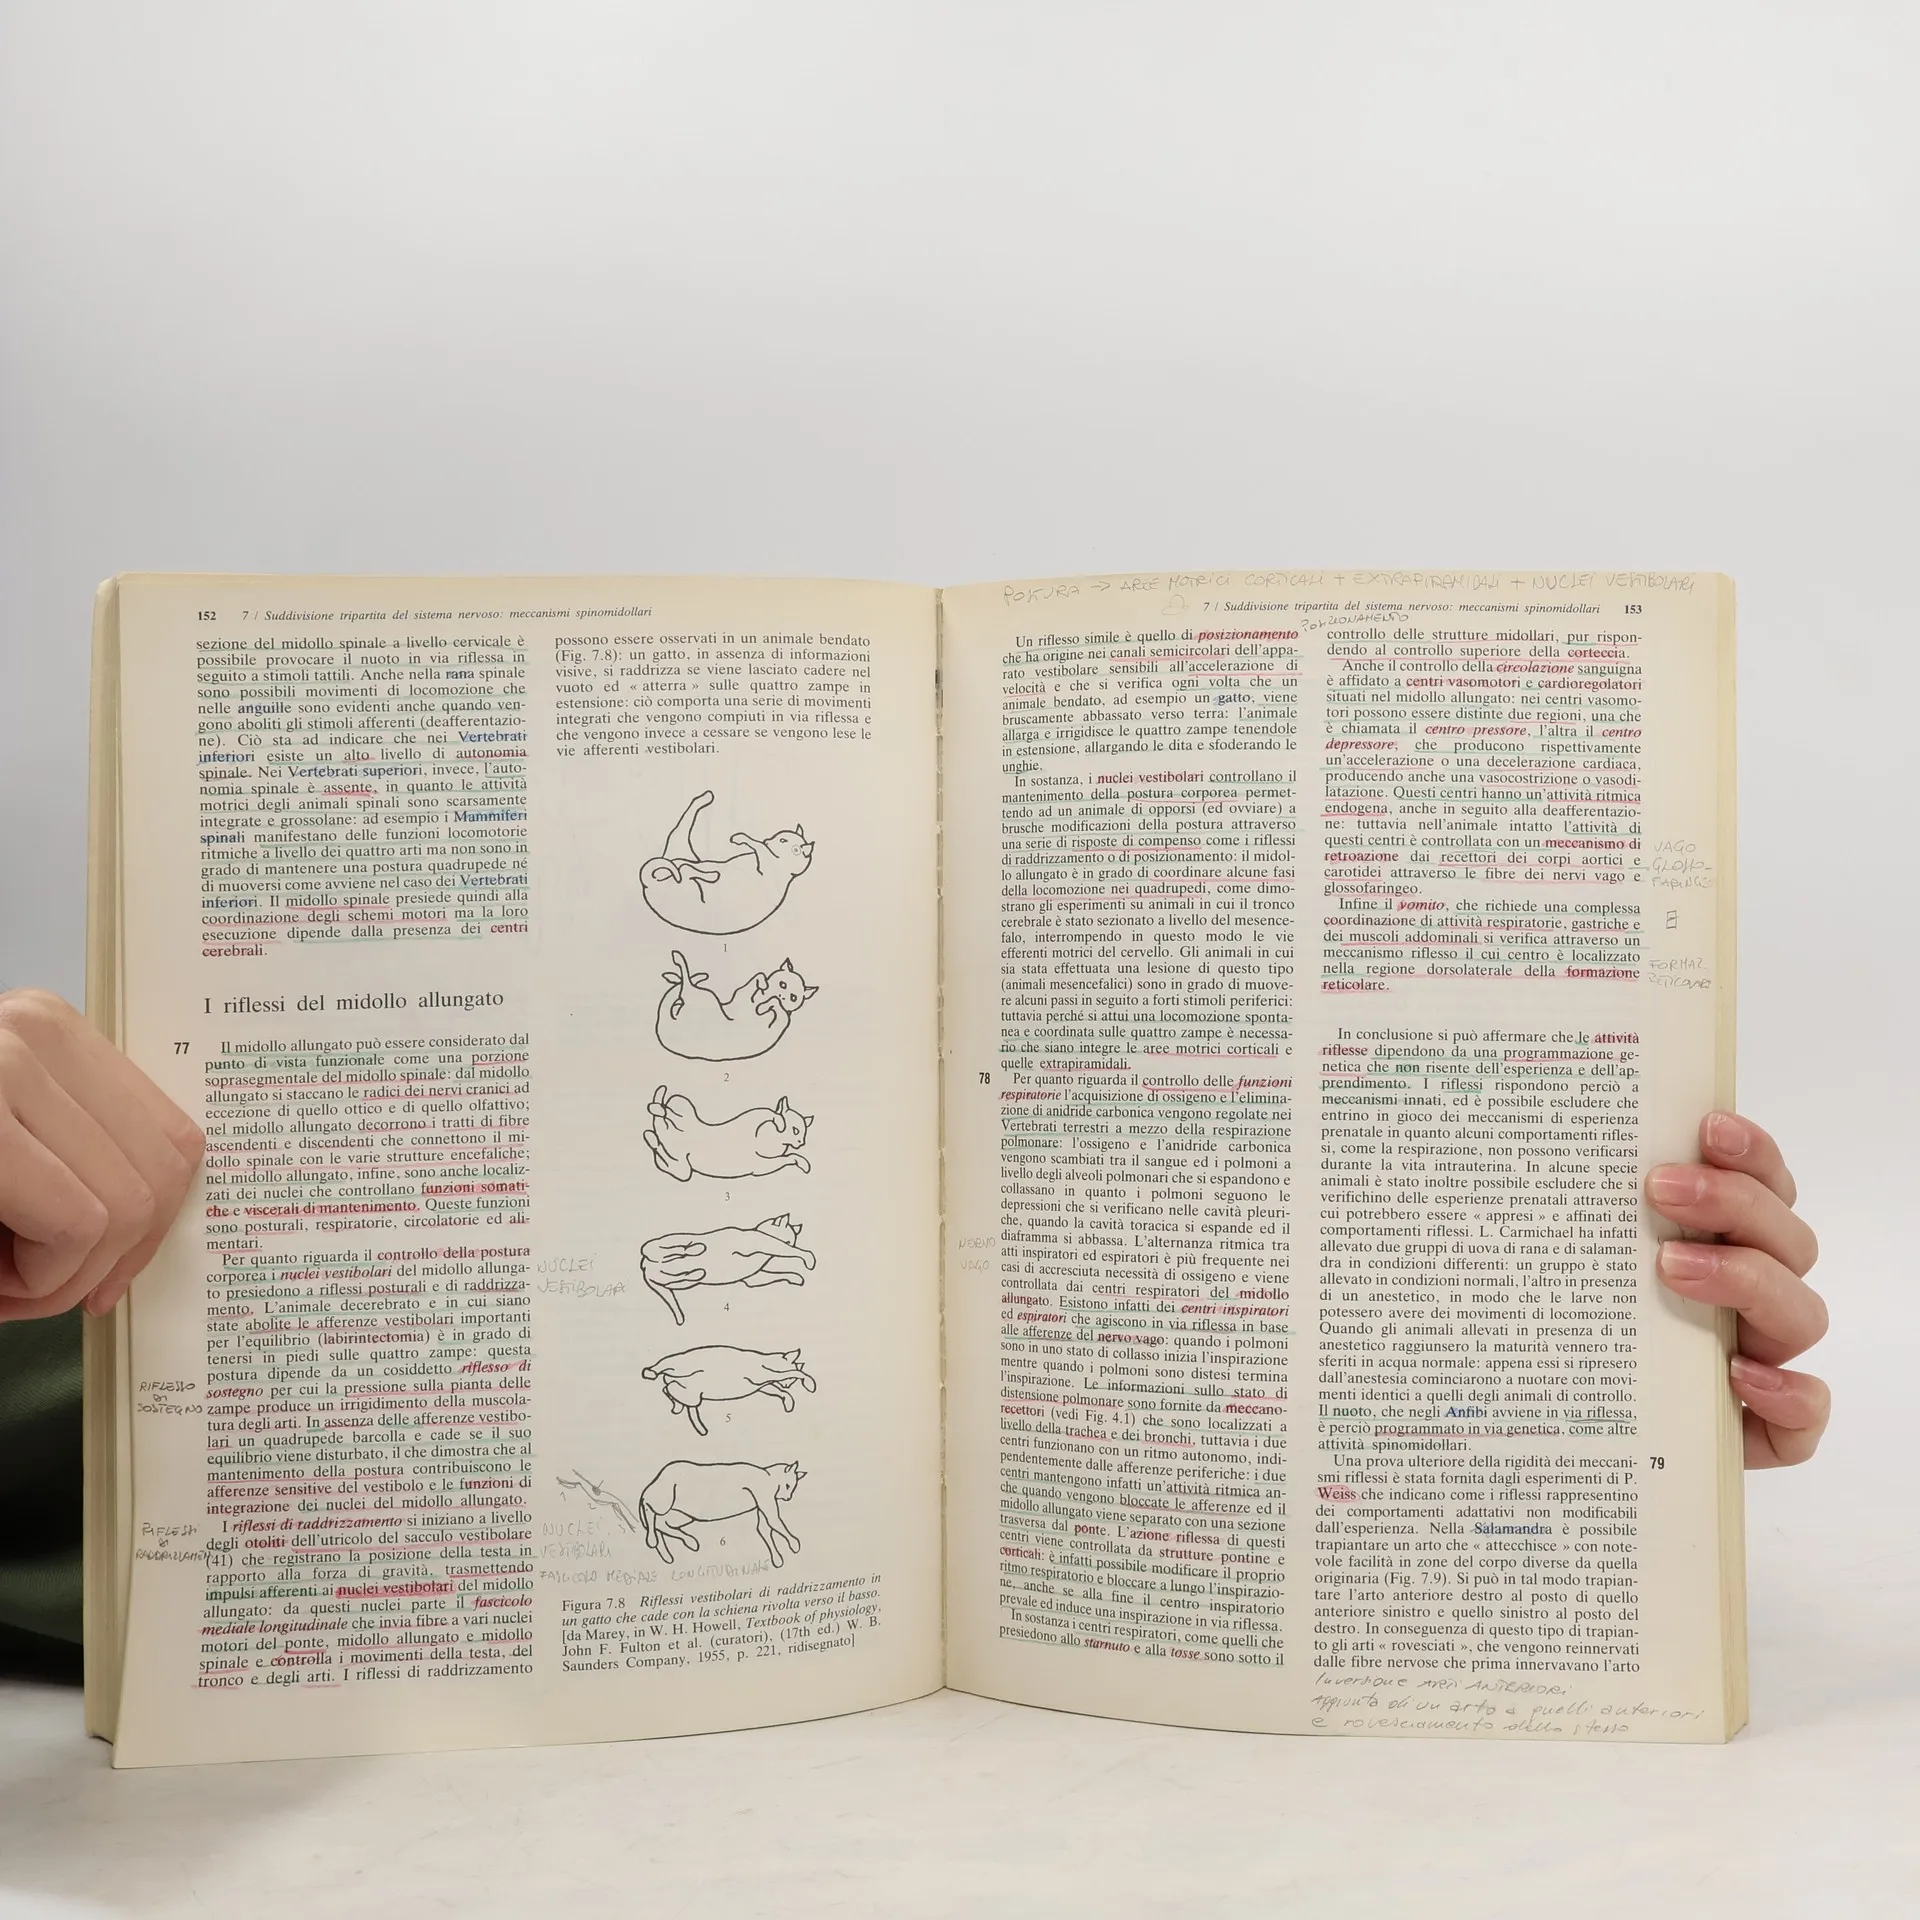 152 7 / Suddivisione tripartita del sistema nervoso: meccanismi spinomidollari
sezione del midollo spinale a livello cervicale è
possibile provocare il nuoto in via riflessa in
seguito a stimoli tattili. Anche nella rana spinale
sono possibili movimenti di locomozione che
nelle anguille sono evidenti anche quando ven-
gono aboliti gli stimoli afferenti (deafferentazio-
ne). Ciò sta ad indicare che nei Vertebrati
inferiori esiste un alto livello di autonomia
spinale. Nei Vertebrati superiori, invece, l'auto-
nomia spinale è assente, in quanto le attività
motrici degli animali spinali sono scarsamente
integrate e grossolane: ad esempio i Mammiferi
spinali manifestano delle funzioni locomotorie
ritmiche a livello dei quattro arti ma non sono in
grado di mantenere una postura quadrupede né
di muoversi come avviene nel caso dei Vertebrati
inferiori. Il midollo spinale presiede quindi alla
coordinazione degli schemi motori ma la loro
esecuzione dipende dalla presenza dei centri
cerebrali.
I riflessi del midollo allungato
77 Il midollo allungato può essere considerato dal
punto di vista funzionale come una porzione
soprasegmentale del midollo spinale: dal midollo
allungato si staccano le radici dei nervi cranici ad
eccezione di quello ottico e di quello olfattivo;
nel midollo allungato decorrono i tratti di fibre
ascendenti e discendenti che connettono il mi-
dollo spinale con le varie strutture encefaliche;
nel midollo allungato, infine, sono anche localiz-
zati dei nuclei che controllano funzioni somati-
che e viscerali di mantenimento. Queste funzioni
sono posturali, respiratorie, circolatorie ed ali-
mentari.
Per quanto riguarda il controllo della postura
corporea i nuclei vestibolari del midollo allunga-
to presiedono a riflessi posturali e di raddrizza-
mento. L'animale decerebrato e in cui siano
state abolite le afferenze vestibolari importanti
per l'equilibrio (labirintectomia) è in grado di
tenersi in piedi sulle quattro zampe: questa
postura dipende da un cosiddetto riflesso di
sostegno per cui la pressione sulla pianta delle
zampe produce un irrigidimento della muscola-
tura degli arti. In assenza delle afferenze vestibo-
lari un quadrupede barcolla e cade se il suo
equilibrio viene disturbato, il che dimostra che al
mantenimento della postura contribuiscono le
afferenze sensitive del vestibolo e le funzioni di
integrazione dei nuclei del midollo allungato.
I riflessi di raddrizzamento si iniziano a livello
degli otoliti dell'utricolo del sacculo vestibolare
(41) che registrano la posizione della testa in
rapporto alla forza di gravità, trasmettendo
impulsi afferenti ai nuclei vestibolari del midollo
allungato: da questi nuclei parte il fascicolo
mediale longitudinale che invia fibre a vari nuclei
motori del ponte, midollo allungato e midollo
spinale e controlla i movimenti della testa, del
tronco e degli arti. I riflessi di raddrizzamento
RIFLESSO
DI
SOSTEGNO
RIFLESSI
DI
RADDRIZZAMEN
possono essere osservati in un animale bendato
(Fig. 7.8): un gatto, in assenza di informazioni
visive, si raddrizza se viene lasciato cadere nel
vuoto ed « atterra » sulle quattro zampe in
estensione: ciò comporta una serie di movimenti
integrati che vengono compiuti in via riflessa e
che vengono invece a cessare se vengono lese le
vie afferenti vestibolari.
1
2
3
4
5
6
NUCLEI
VESTIBOLARI
1 2 3
NUCLEI
VESTIBOLARI
FASCICOLO MEDIALE LONGITUDINALE
Figura 7.8 Riflessi vestibolari di raddrizzamento in
un gatto che cade con la schiena rivolta verso il basso.
[da Marey, in W. H. Howell, Textbook of physiology,
John F. Fulton et al. (curatori), (17th ed.) W. B.
Saunders Company, 1955, p. 221, ridisegnato]
POSTURA → AREE MOTRICI CORTICALI + EXTRAPIRAMIDALI + NUCLEI VESTIBOLARI
7 / Suddivisione tripartita del sistema nervoso: meccanismi spinomidollari 153
POSIZIONAMENTO
Un riflesso simile è quello di posizionamento
che ha origine nei canali semicircolari dell'appa-
rato vestibolare sensibili all'accelerazione di
velocità e che si verifica ogni volta che un
animale bendato, ad esempio un gatto, viene
bruscamente abbassato verso terra: l'animale
allarga e irrigidisce le quattro zampe tenendole
in estensione, allargando le dita e sfoderando le
unghie.
In sostanza, i nuclei vestibolari controllano il
mantenimento della postura corporea permet-
tendo ad un animale di opporsi (ed ovviare) a
brusche modificazioni della postura attraverso
una serie di risposte di compenso come i riflessi
di raddrizzamento o di posizionamento: il midol-
lo allungato è in grado di coordinare alcune fasi
della locomozione nei quadrupedi, come dimo-
strano gli esperimenti su animali in cui il tronco
cerebrale è stato sezionato a livello del mesence-
falo, interrompendo in questo modo le vie
efferenti motrici del cervello. Gli animali in cui
sia stata effettuata una lesione di questo tipo
(animali mesencefalici) sono in grado di muove-
re alcuni passi in seguito a forti stimoli periferici:
tuttavia perché si attui una locomozione sponta-
nea e coordinata sulle quattro zampe è necessa-
rio che siano integre le aree motrici corticali e
quelle extrapiramidali.
78 Per quanto riguarda il controllo delle funzioni
respiratorie l'acquisizione di ossigeno e l'elimina-
zione di anidride carbonica vengono regolate nei
Vertebrati terrestri a mezzo della respirazione
polmonare: l'ossigeno e l'anidride carbonica
vengono scambiati tra il sangue ed i polmoni a
livello degli alveoli polmonari che si espandono e
collassano in quanto i polmoni seguono le
depressioni che si verificano nelle cavità pleuri-
che, quando la cavità toracica si espande ed il
diaframma si abbassa. L'alternanza ritmica tra
atti inspiratori ed espiratori è più frequente nei
casi di accresciuta necessità di ossigeno e viene
controllata dai centri respiratori del midollo
allungato. Esistono infatti dei centri inspiratori
ed espiratori che agiscono in via riflessa in base
alle afferenze del nervo vago: quando i polmoni
sono in uno stato di collasso inizia l'inspirazione
mentre quando i polmoni sono distesi termina
l'inspirazione. Le informazioni sullo stato di
distensione polmonare sono fornite da meccano-
recettori (vedi Fig. 4.1) che sono localizzati a
livello della trachea e dei bronchi, tuttavia i due
centri funzionano con un ritmo autonomo, indi-
pendentemente dalle afferenze periferiche: i due
centri mantengono infatti un'attività ritmica an-
che quando vengono bloccate le afferenze ed il
midollo allungato viene separato con una sezione
trasversa dal ponte. L'azione riflessa di questi
centri viene controllata da strutture pontine e
corticali: è infatti possibile modificare il proprio
ritmo respiratorio e bloccare a lungo l'inspirazio-
ne, anche se alla fine il centro inspiratorio
prevale ed induce una inspirazione in via riflessa.
In sostanza i centri respiratori, come quelli che
presiedono allo starnuto e alla tosse sono sotto il
NERVO
VAGO
controllo delle strutture midollari, pur rispon-
dendo al controllo superiore della corteccia.
Anche il controllo della circolazione sanguigna
è affidato a centri vasomotori e cardioregolatori
situati nel midollo allungato: nei centri vasomo-
tori possono essere distinte due regioni, una che
è chiamata il centro pressore, l'altra il centro
depressore, che producono rispettivamente
un'accelerazione o una decelerazione cardiaca,
producendo anche una vasocostrizione o vasodi-
latazione. Questi centri hanno un'attività ritmica
endogena, anche in seguito alla deafferentazio-
ne: tuttavia nell'animale intatto l'attività di
questi centri è controllata con un meccanismo di
retroazione dai recettori dei corpi aortici e
carotidei attraverso le fibre dei nervi vago e
glossofaringeo.
Infine il vomito, che richiede una complessa
coordinazione di attività respiratorie, gastriche e
dei muscoli addominali si verifica attraverso un
meccanismo riflesso il cui centro è localizzato
nella regione dorsolaterale della formazione
reticolare.
VAGO
GLOSSO-
FARINGEO
FORMAZ.
RETICOLARE
In conclusione si può affermare che le attività
riflesse dipendono da una programmazione ge-
netica che non risente dell'esperienza e dell'ap-
prendimento. I riflessi rispondono perciò a
meccanismi innati, ed è possibile escludere che
entrino in gioco dei meccanismi di esperienza
prenatale in quanto alcuni comportamenti rifles-
si, come la respirazione, non possono verificarsi
durante la vita intrauterina. In alcune specie
animali è stato inoltre possibile escludere che si
verifichino delle esperienze prenatali attraverso
cui potrebbero essere « appresi » e affinati dei
comportamenti riflessi. L. Carmichael ha infatti
allevato due gruppi di uova di rana e di salaman-
dra in condizioni differenti: un gruppo è stato
allevato in condizioni normali, l'altro in presenza
di un anestetico, in modo che le larve non
potessero avere dei movimenti di locomozione.
Quando gli animali allevati in presenza di un
anestetico raggiunsero la maturità vennero tra-
sferiti in acqua normale: appena essi si ripresero
dall'anestesia cominciarono a nuotare con movi-
menti identici a quelli degli animali di controllo.
Il nuoto, che negli Anfibi avviene in via riflessa,
è perciò programmato in via genetica, come altre
attività spinomidollari.
Una prova ulteriore della rigidità dei meccani- 79
smi riflessi è stata fornita dagli esperimenti di P.
Weiss che indicano come i riflessi rappresentino
dei comportamenti adattativi non modificabili
dall'esperienza. Nella Salamandra è possibile
trapiantare un arto che « attecchisce » con note-
vole facilità in zone del corpo diverse da quella
originaria (Fig. 7.9). Si può in tal modo trapian-
tare l'arto anteriore destro al posto di quello
anteriore sinistro e quello sinistro al posto del
destro. In conseguenza di questo tipo di trapian-
to gli arti « rovesciati », che vengono reinnervati
dalle fibre nervose che prima innervavano l'arto
Inversione ARTI ANTERIORI
Aggiunta di un arto a quelli anteriori
e rovesciamento dello stesso